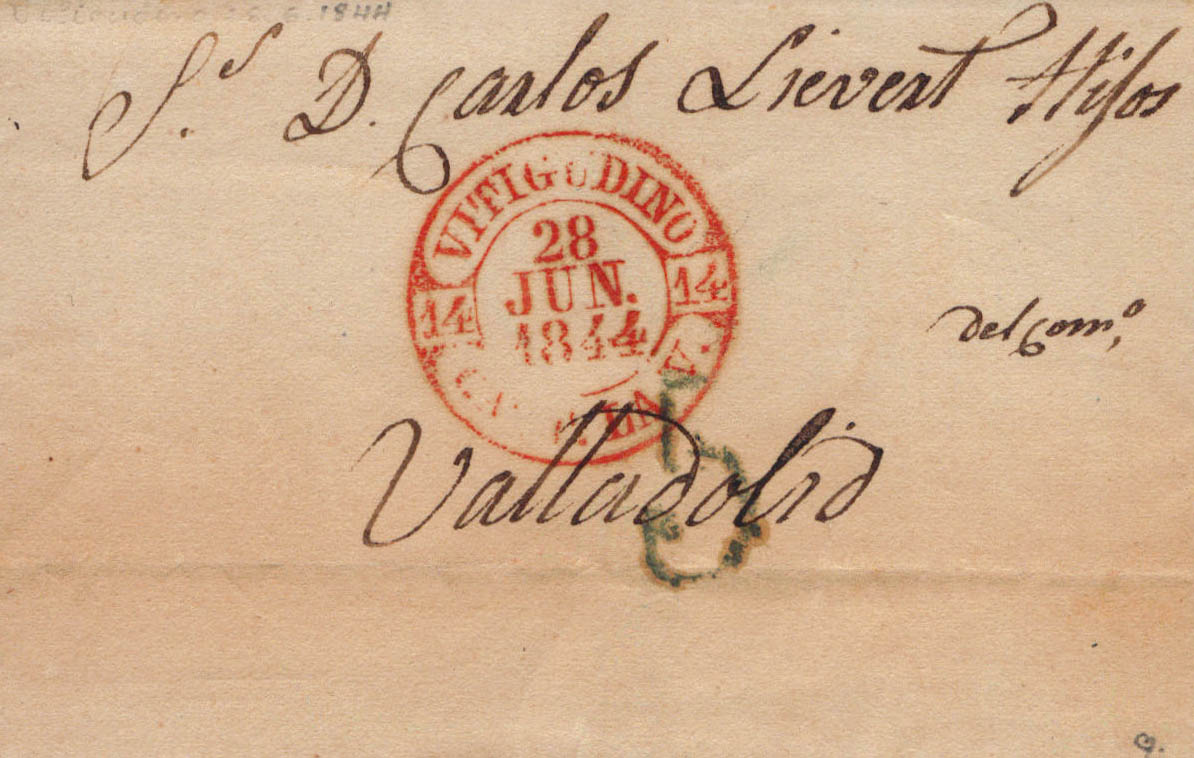 S.s D. Carlos Lievert Hijos
VITIGUDINO
28
JUN.
1844
14 14
del Com.o
Valladolid
5